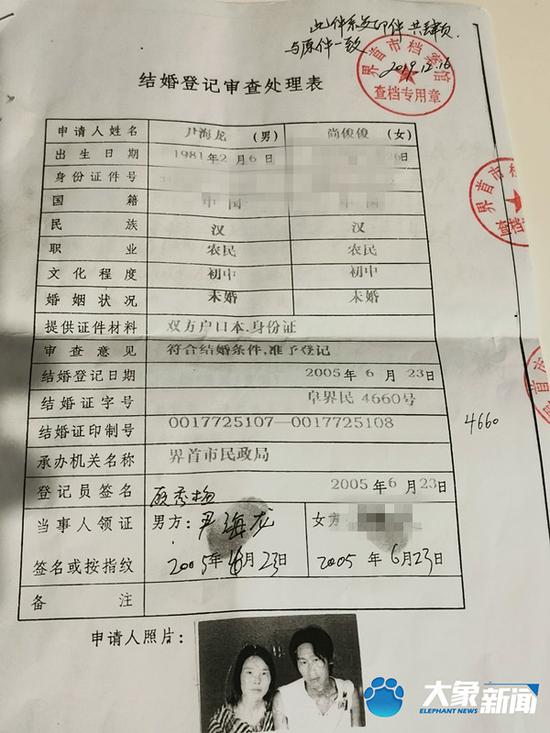 此件系复印件共肆页
与原件一致
2019.12.16
界首市档案馆
查档专用章
结婚登记审查处理表
申请人姓名 尹海龙 (男) 尚俊俊 (女)
出生日期 1981年2月6日
身份证件号
国籍 中国 中国
民族 汉 汉
职业 农民 农民
文化程度 初中 初中
婚姻状况 未婚 未婚
提供证件材料 双方户口本.身份证
审查意见 符合结婚条件,准予登记
结婚登记日期 2005年6月23日
结婚证字号 阜界民4660号
4660
结婚证印制号 0017725107—0017725108
承办机关名称 界首市民政局
登记员签名 2005年6月23日
当事人领证 男方:尹海龙 女方
签名或按指纹 2005年6月23日 2005年6月23日
备注
申请人照片:
大象新闻
ELEPHANT NEWS